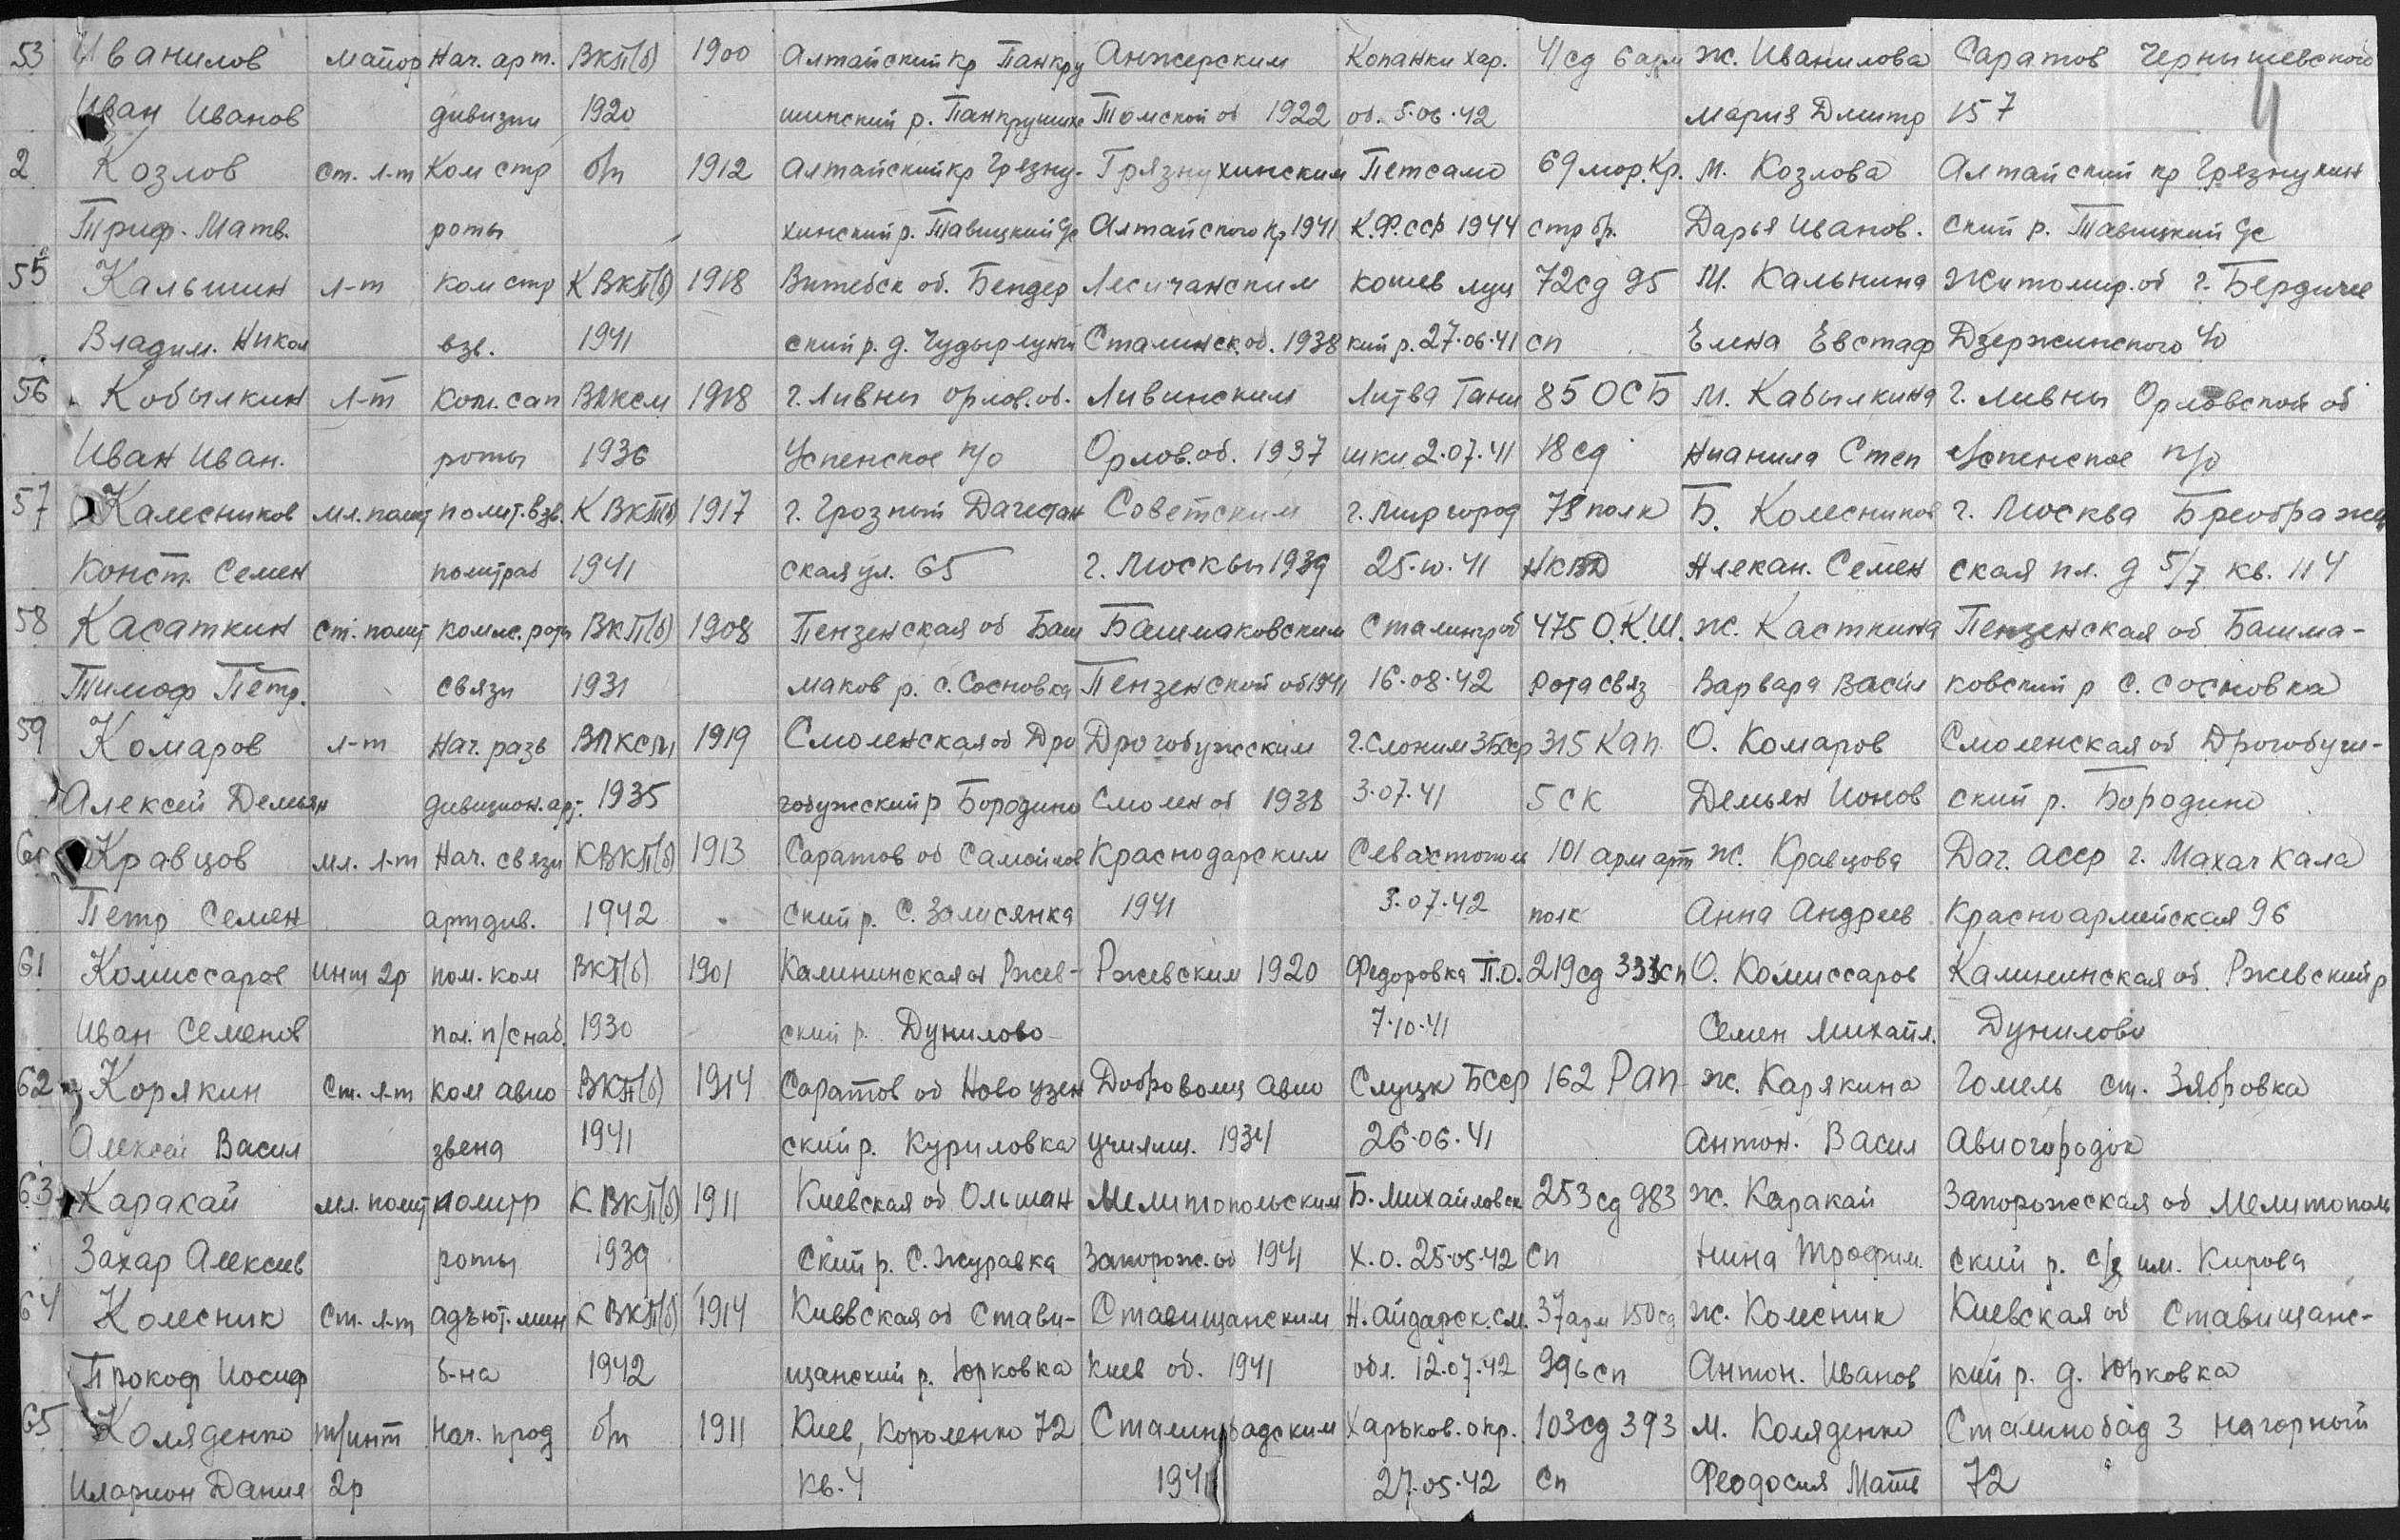 53 Иванилов майор Нач. арт. ВКП(б) 1900 Алтайский кр Панкру Анжерским Копанки хар. 41 сд 6 арм Ж. Иванилова Саратов Чернышевского
4
Иван Иванов дивизии 1920 шинский р. Панкрушихе Томской об 1922 об. 5.06.42 Мария Дмитр 157
2 Козлов ст. л-т Ком стр б/п 1912 Алтайский кр Грязну- Грязнухинским Петсамо 69 мор. Кр. М. Козлова Алтайский кр Грязнухин
Триф. Матв. роты хинский р. Тавицкий Ус Алтайского кр 1941 К.Ф.ССР 1944 стр бр. Дарья Иванов. ский р. Тавицкий Ус
55 Кальнин л-т ком стр К ВКП(б) 1918 Витебск об. Бендер Лесичанским кошев луц 72 сд 95 М. Кальнина Житомир. об г. Бердиче
Владим. Никол взв. 1941 ский р. д. Чудырлунги Сталинск. об. 1938 кий р. 27.06.41 сп Елена Евстаф Дзержинского 40
56 Кобылкин л-т ком. сап ВЛКСМ 1918 г. Ливны Орлов. об. Ливинским Литва Гани 85 ОСБ М. Кабылкина г. Ливны Орловской об
Иван Иван. роты 1936 Успенское п/о Орлов. об. 1937 шки 2.07.41 18 сд Степ Успенское п/о
57 Калесников мл. полит полит. взв. К ВКП(б) 1917 г. Грозный Дагестан Советским г. Миргород 78 полк Б. Колесников г. Москва Бреображен
Конст. Семен политраб 1941 ская ул. 65 г. Москвы 1939 25.10.41 НКВД Алекан. Семен ская пл. д 5/7 кв. 114
58 Касаткин ст. полит комис. роты ВКП(б) 1908 Пензенская об Баш Башмаковским Сталингр об 475 О.К.Ш. Ж. Касткина Пензенская об Башма-
Тимоф Петр. связи 1931 маков р. с. Сосновка Пензенской об 1941 16.08.42 рота связ Варвара Васил ковский р с. Сосновка
59 Комаров л-т Нач. разв ВЛКСМ 1919 Смоленская об Дро Дрогобужским г. Слоним ЗБССР 315 Кап О. Комаров Смоленская об Дрогобуж-
Алексей Демьян дивизион. арт. 1935 гобужский р Бородино Смолен об 1938 3.07.41 5 СК Демьян Ионов ский р. Бородино
60 Кравцов мл. л-т Нач. связи КВКП(б) 1913 Саратов об Самойлов Краснодарским Севастополь 101 арм арт Ж. Кравцова Даг. АССР г. Махач Кала
Петр Семен арт див. 1942 ский р. С. Залисянка 1941 3.07.42 полк Анна Андреев Красноармейская 96
61 Комиссаров инт 2р пом. ком ВКП(б) 1901 Калининская об Ржев- Ржевским 1920 Федоровка П.О. 219 сд сп О. Комиссаров Калининская об. Ржевский р
Иван Семенов пол. п/снаб. 1930 ский р. Дунилово 7.10.41 Семен Михайл. Дунилово
62 Корякин Ст. л-т ком авио ВКП(б) 1914 Саратов об Новоузен Доброволц авио Слуцк БССР 162 Рап Ж. Карякина Гомель ст. Зябровка
Алексей Васил звена 1941 ский р. Куриловка училищ. 1934 26.06.41 Антон. Васил Авиогородок
63 Каракай мл. полит политр К ВКП(б) 1911 Киевская об Ольшан Мелитопольским Б. Михайловск 253 сд 983 Ж. Каракай Запорожская об Мелитополь
Захар Алексеев роты 1939 ский р. С. Журавка Запорож. об 1941 Х.О. 25.05.42 сп Нина Трофим. ский р. с/з им. Кирова
64 Колесник Ст. л-т адъют. мин К ВКП(б) 1914 Киевская об Стави- Ставищанским Н. Айдарск. см. 37 арм 150 сд Ж. Колесник Киевская об Ставищанс-
Прокоф Иосиф б-на 1942 щанский р. Юрковка Киев об. 1941 обл. 12.07.42 396 сп Антон. Иванов кий р. д. Юрковка
65 Коляденко т/инт Нач. прод б/п 1911 Киев, Короленко 72 Сталинбадским Харьков. окр. 103 сд 393 М. Коляденко Сталинобад 3 Нагорный
Иларион Данил 2р кв. 4 1941 27.05.42 сп Феодосия Матв 72